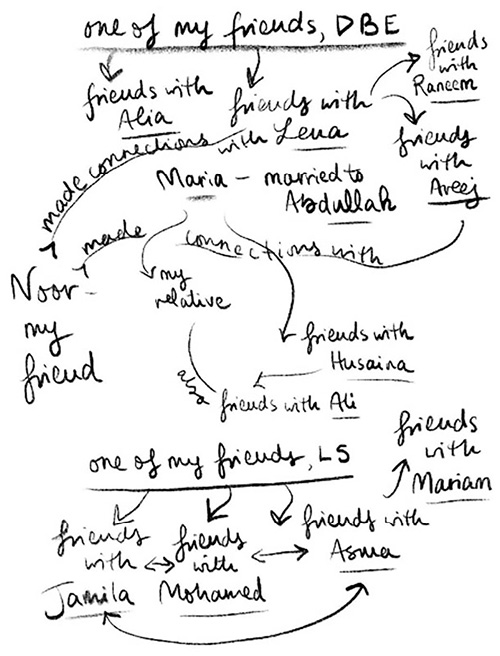 one of my friends, DBE
friends with
Alia
friends with
with Lena
friends
with
Raneem
friends
with
Areej
made connections
Maria - married to
Abdullah
made
connections with
Noor -
my
friend
my
relative
friends with
Husaina
also
friends with Ali
one of my friends, LS
friends
with
Mariam
friends
with
Jamila
friends
with
Mohamed
friends with
Asma